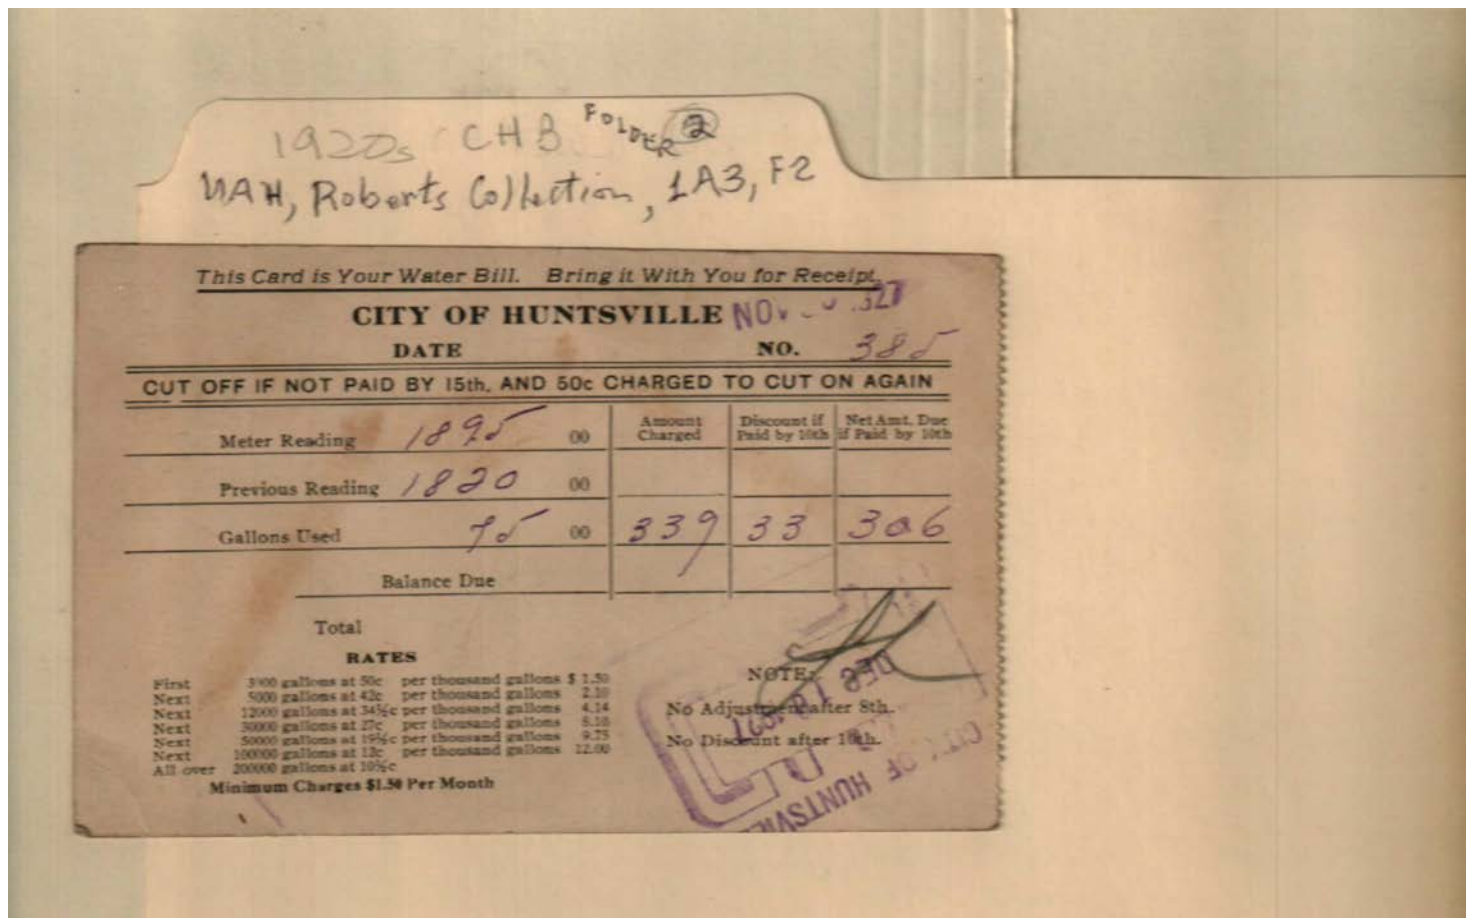 1920s CHB FOLDER 2
UAH, Roberts Collection, 1A3, F2
This Card is Your Water Bill. Bring it With You for Receipt.
CITY OF HUNTSVILLE NOV
DATE NO. 385
CUT OFF IF NOT PAID BY 15th, AND 50c CHARGED TO CUT ON AGAIN
Amount Charged Discount if Paid by 10th Net Amt. Due if Paid by 10th
Meter Reading 1895 00
Previous Reading 1820 00
Gallons Used 75 00 339 33 306
Balance Due
Total
RATES
First 3000 gallons at 50c per thousand gallons $ 1.50
Next 5000 gallons at 42c per thousand gallons 2.10
Next 12000 gallons at 34½c per thousand gallons 4.14
Next 30000 gallons at 27c per thousand gallons 8.10
Next 50000 gallons at 19½c per thousand gallons 9.75
Next 100000 gallons at 12c per thousand gallons 12.00
All over 200000 gallons at 10½c
Minimum Charges $1.50 Per Month
NOTE:
No Adjustment after 8th.
No Discount after 10th.
DEC 10 1927
CITY OF HUNTSVILLE